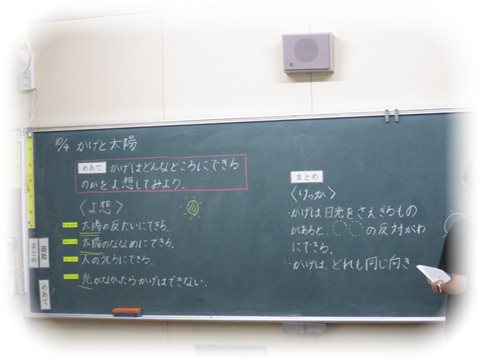 10/4 かげと太陽
めあて かげはどんなところにできる
のかをよ想してみよう。
〈よ想〉
太陽の反たいにできる。
太陽のななめにできる。
人のうしろにできる。
光がなかったらかげはできない。
まとめ
〈けっか〉
・かげは日光をさえぎるもの
があると、○○の反対がわ
にできる。
・かげは、どれも同じ向き
めあて